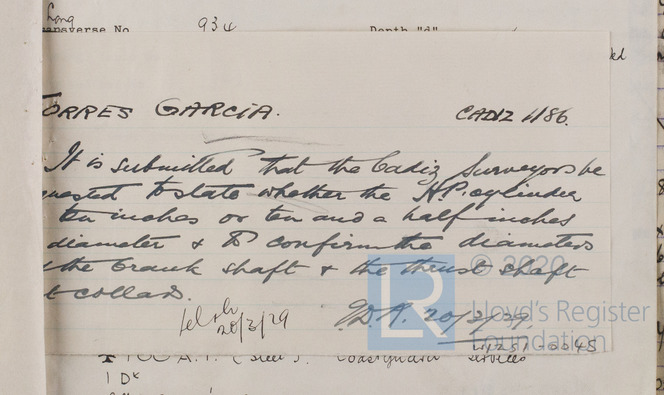 Long
ansverse No. 934 Depth "d"
ORRES GARCIA. CADIZ 4186.
It is submitted that the Cadiz Surveyors be
uested to state whether the H.P. cylinder
ten inches or ten and a half inches
diameter & to confirm the diameters
the crank shaft & the thrust shaft
t collars.
20/3/29 J.D.A. 20/3/29.
LR
© 2020
Lloyd's Register
Foundation
100 A.1. (Steel). Coastguard Services